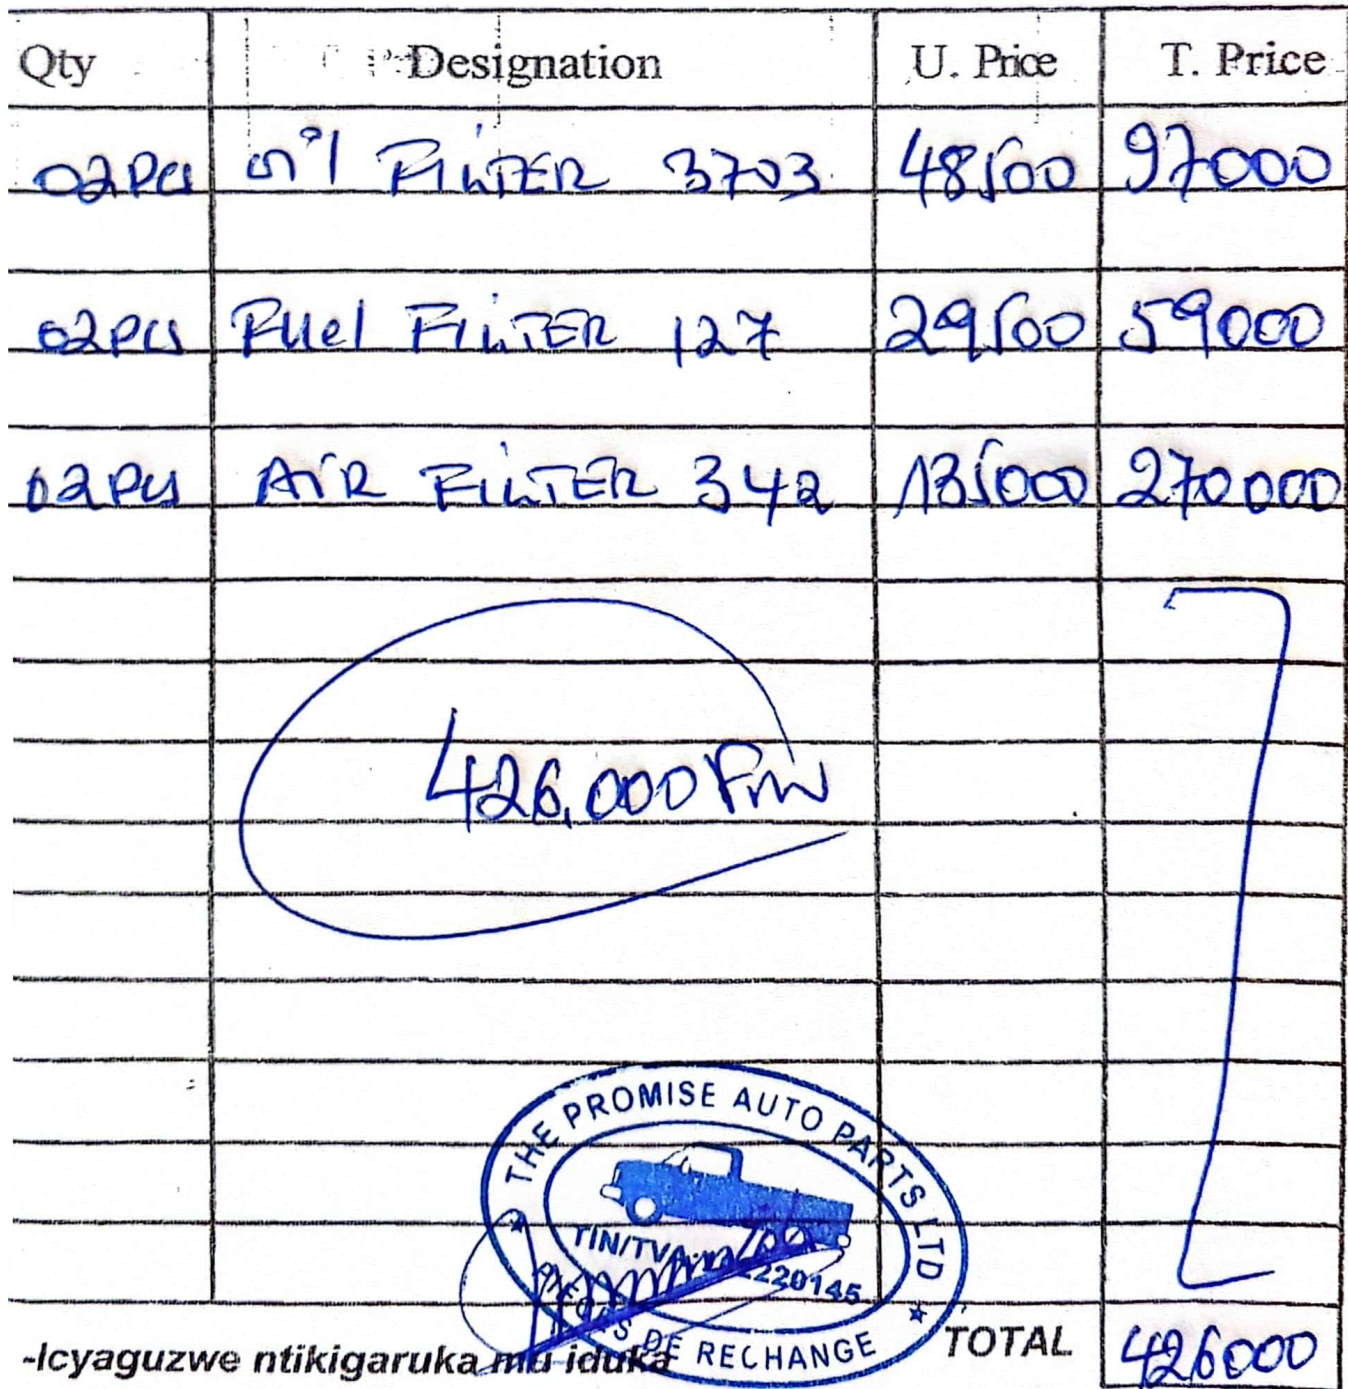 Qty Designation U. Price T. Price
02Pcs oil FiLTER 3703 48500 97000
02Pcs Fuel FiLTER 127 29500 59000
02Pcs AiR FiLTER 342 135000 270000
426,000 Frw
THE PROMISE AUTO PARTS LTD
TIN/TVA: 220145
PIECES DE RECHANGE
-Icyaguzwe ntikigaruka mu iduka TOTAL 426000